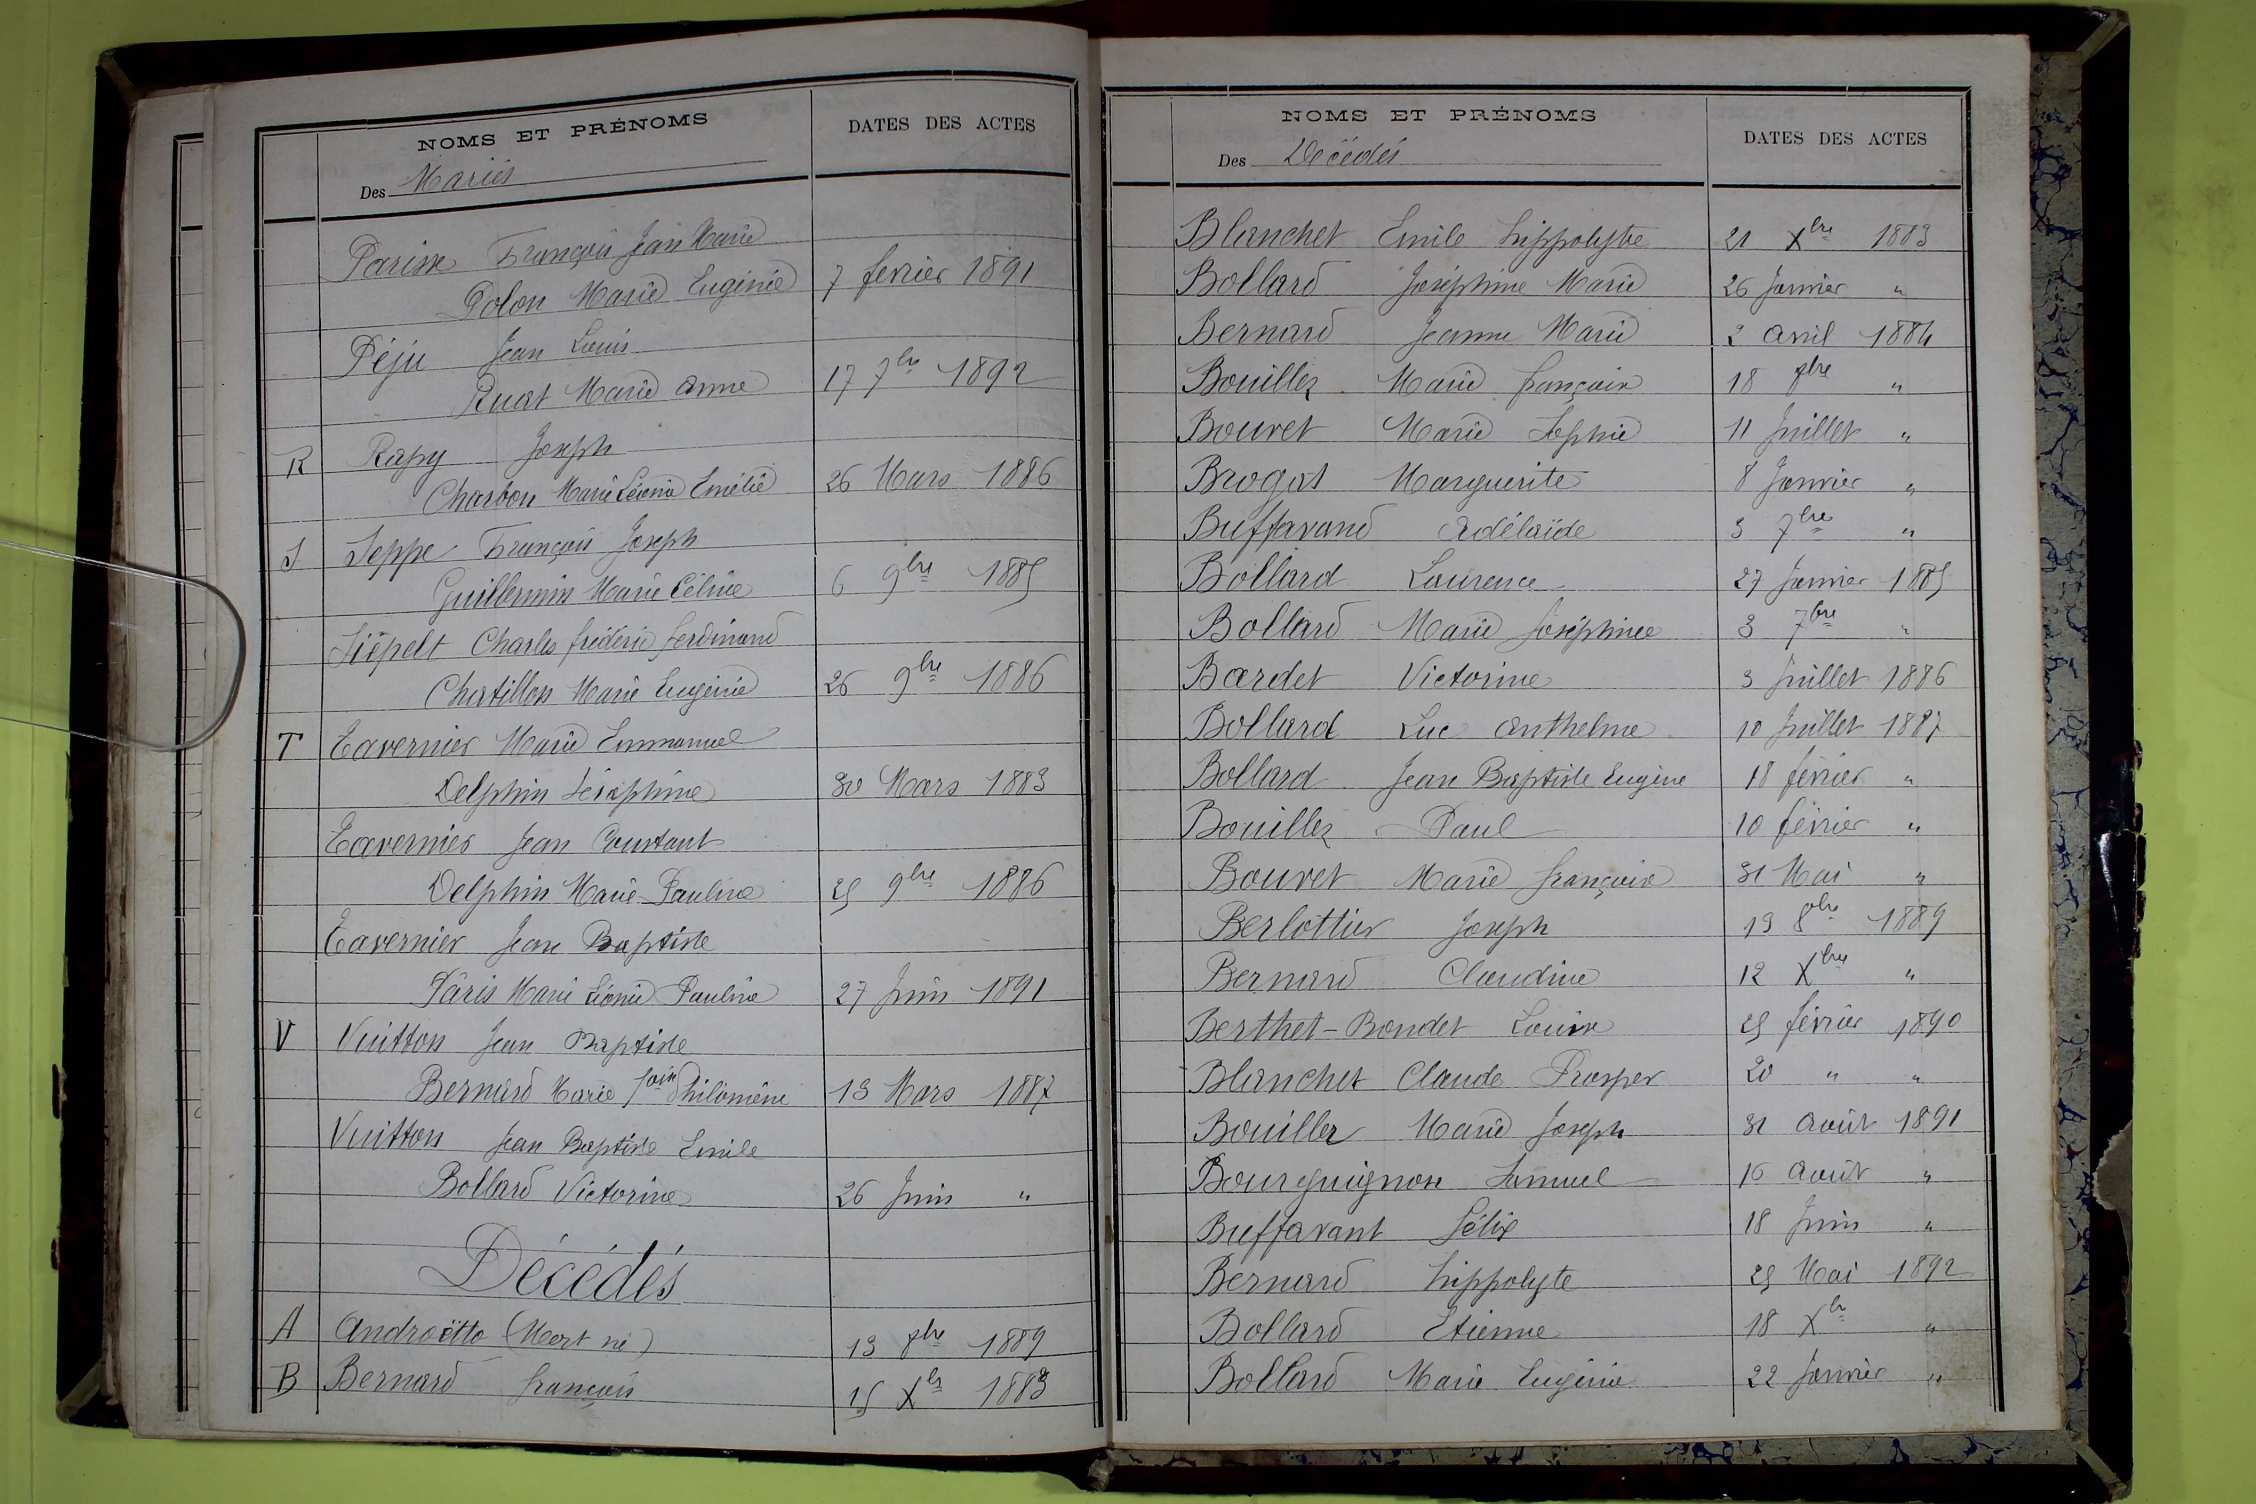 NOMS ET PRÉNOMS
DATES DES ACTES
Des Mariés
Parisse François Jean Marie
Polon Marie Eugénie 7 février 1891
Péju Jean Louis
Ruat Marie Anne 17 7bre 1892
R Rapy Joseph
Charbon Marie Léonie Emélie 26 Mars 1886
S Seppe François Joseph
Guillermin Marie Céline 6 9bre 1885
Siépelt Charles frédéric ferdinand
Chatillon Marie Eugénie 26 9bre 1886
T Tavernier Marie Emmanuel
Delphin Séraphine 30 Mars 1883
Tavernier Jean Constant
Delphin Marie Pauline 25 9bre 1886
Tavernier Jean Baptiste
Pâris Marie Léonie Pauline 27 Juin 1891
V Vuitton Jean Baptiste
Bernard Marie Philomène 13 Mars 1887
Vuitton Jean Baptiste Emile
Bollard Victorine 26 Juin "
Décédés
A Androëtto (Mort né) 13 8bre 1889
B Bernard françois 15 Xbre 1883
NOMS ET PRÉNOMS
DATES DES ACTES
Des Décédés
Blanchet Emile hippolyte 21 Xbre 1883
Bollard Joséphine Marie 26 Janvier "
Bernard Jeanne Marie 2 avril 1884
Bouillez Marie françoise 18 8bre "
Bouvet Marie Sophie 11 Juillet "
Brogat Marguerite 8 Janvier "
Buffavand Adélaïde 3 7bre "
Bollard Laurence 27 Janvier 1885
Bollard Marie Joséphine 3 7bre "
Bardet Victorine 3 Juillet 1886
Bollard Luc anthelme 10 Juillet 1887
Bollard Jean Baptiste Eugène 18 février "
Bouillez Paul 10 février "
Bouvet Marie françoise 31 Mai "
Berlottier Joseph 19 8bre 1889
Bernard Claudine 12 Xbre "
Berthet-Bondet Louise 25 février 1890
Blanchet Claude Prosper 20 " "
Bouillez Marie Joseph 31 août 1891
Bourguignon Samuel 16 août "
Buffavant félix 18 Juin "
Bernard hippolyte 25 Mai 1892
Bollard Etienne 18 Xbre "
Bollard Marie Eugénie 22 Janvier "